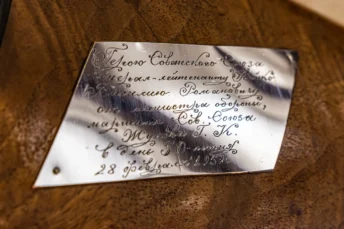 Герою Советского Союза
генерал-лейтенанту
Романовичу
от министра обороны,
маршала Сов. Союза
Жукова Г. К.
в день
28 февраля